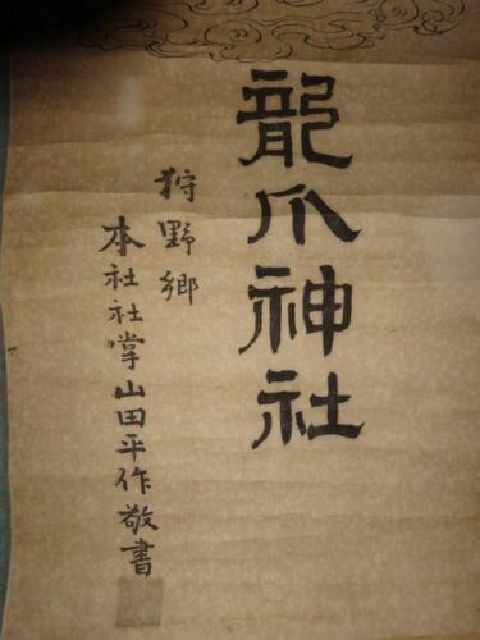 龍爪神社
狩野郷
本社社掌山田平作敬書